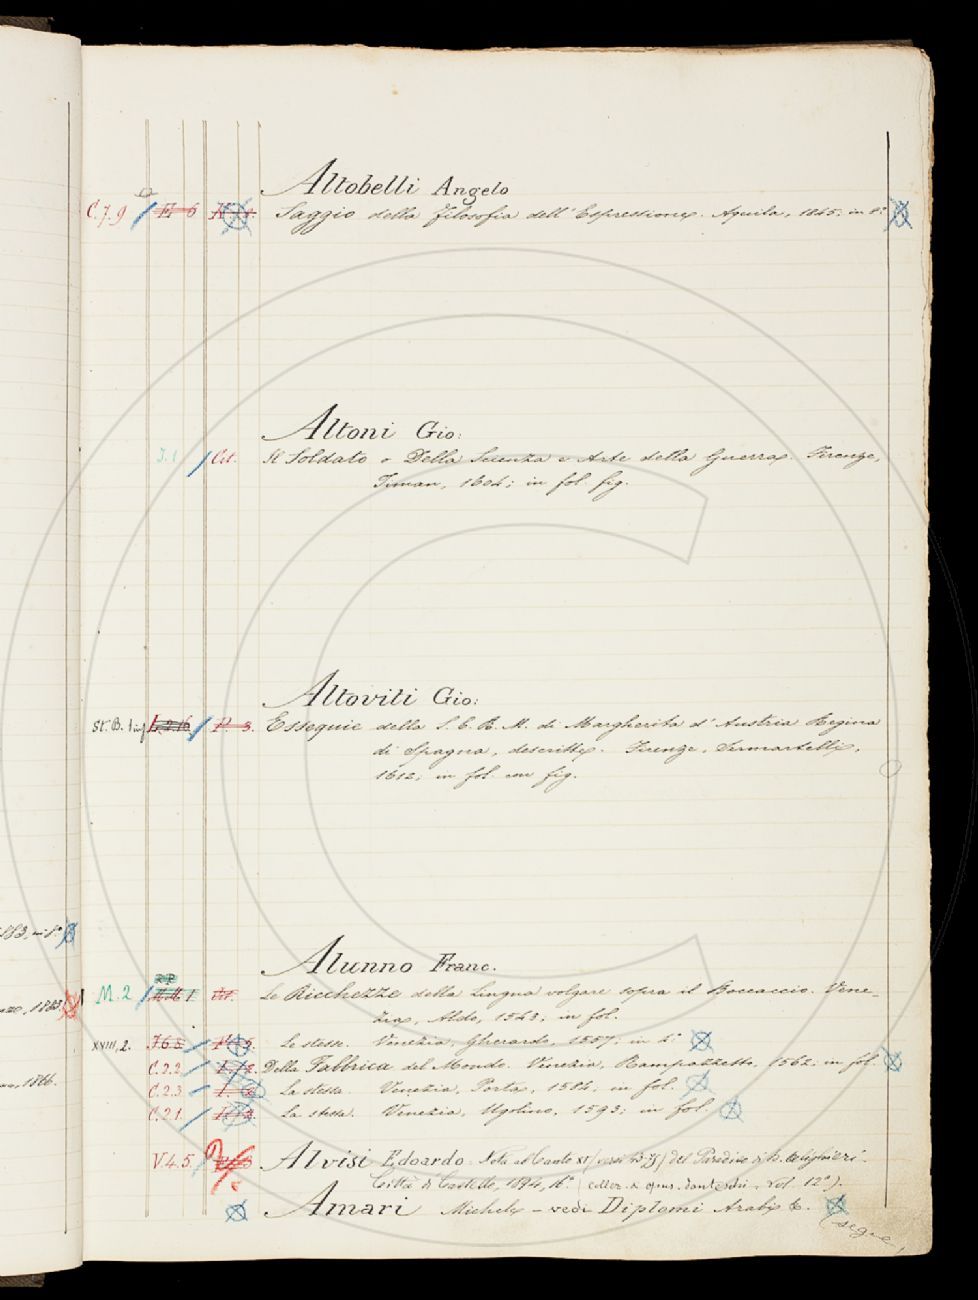 Altobelli Angelo
C.7.9 H 6 Saggio della Filosofia dell'Espressione. Aquila, 1845; in 8.°
Altoni Gio:
J.1 Cit. Il Soldato o Della Scienza e Arte della Guerra. Firenze,
Timan, 1604; in fol. fig.
Altoviti Gio:
St. B. P. 3. Essequie della S. C. R. M. di Margherita d'Austria Regina
di Spagna, descritte. Firenze, Sermartelli,
1612; in fol. con fig.
183, in 8.°
Alunno Franc.
M.2 Cit. Le Ricchezze della Lingua volgare sopra il Boccaccio. Vene-
1883
zia, Aldo, 1543; in fol.
XXIII,2. Le stesse. Venezia, Gherardo, 1557; in 4.°
C.2.2 Della Fabbrica del Mondo. Venezia, Rampazzetto, 1562; in fol.
1866.
C.2.3. La stessa. Venezia, Porta, 1584; in fol.
C.2.1. La stessa. Venezia, Ugolino, 1593; in fol.
V.4.5. Alvisi Edoardo. Nota al Canto XI del Paradiso di D. Alighieri.
Città di Castello, 1894, 16.° (collez. di opus. danteschi, vol. 12°).
Amari Michele – vedi Diplomi Arabi &.
(segue)